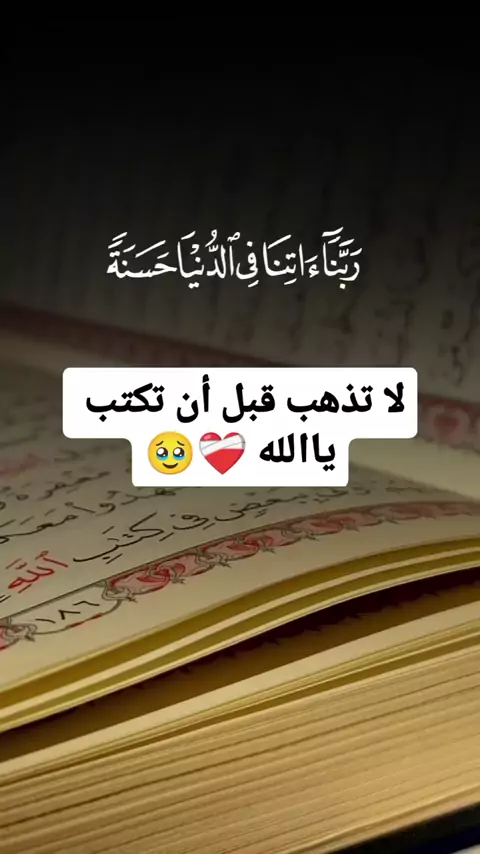 رَبَّنَآ ءَاتِنَا فِى ٱلدُّنْيَا حَسَنَةً
لا تذهب قبل أن تكتب
ياالله ❤️‍🩹🥹
بَعْضٍ فِى كِتَٰبِ ٱللَّهِ
١٨٦